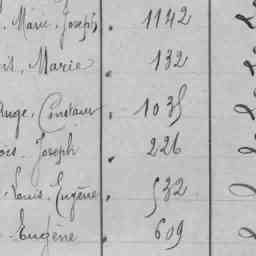 . Marie Joseph . 1142
Marie . 132
Ange, Constant . 1035
Joseph . 226
, Louis, Eugène . 532
Eugène . 609